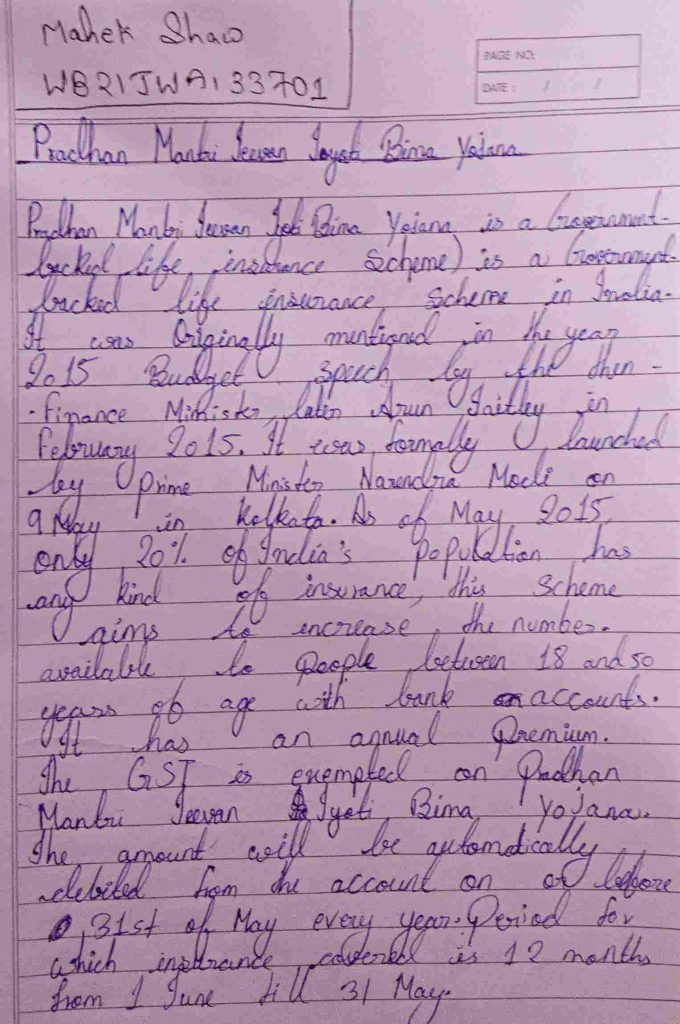 Mahek Shaw
WB21JWA133701
PAGE NO:
DATE: / /
Pradhan Mantri Jeevan Joyoti Bima Yojana
Pradhan Mantri Jeevan Joti Bima Yojana is a Government-
backed life insurance scheme) is a Government-
backed life insurance scheme in India.
It was Originally mentioned in the year
2015 Budget speech by the then -
- Finance Minister, later Arun Jaitley in
February 2015. It was formally launched
by Prime Minister Narendra Modi on
9 May in Kolkata. As of May 2015,
only 20% of India's population has
any kind of insurance, this scheme
aims to increase the number.
available to people between 18 and 50
years of age with bank accounts.
It has an annual Premium.
The GST is exempted on Pradhan
Mantri Jeevan Jyoti Bima Yojana.
The amount will be automatically
debited from the account on or before
31st of May every year. Period for
which insurance covered is 12 months
from 1 June till 31 May.